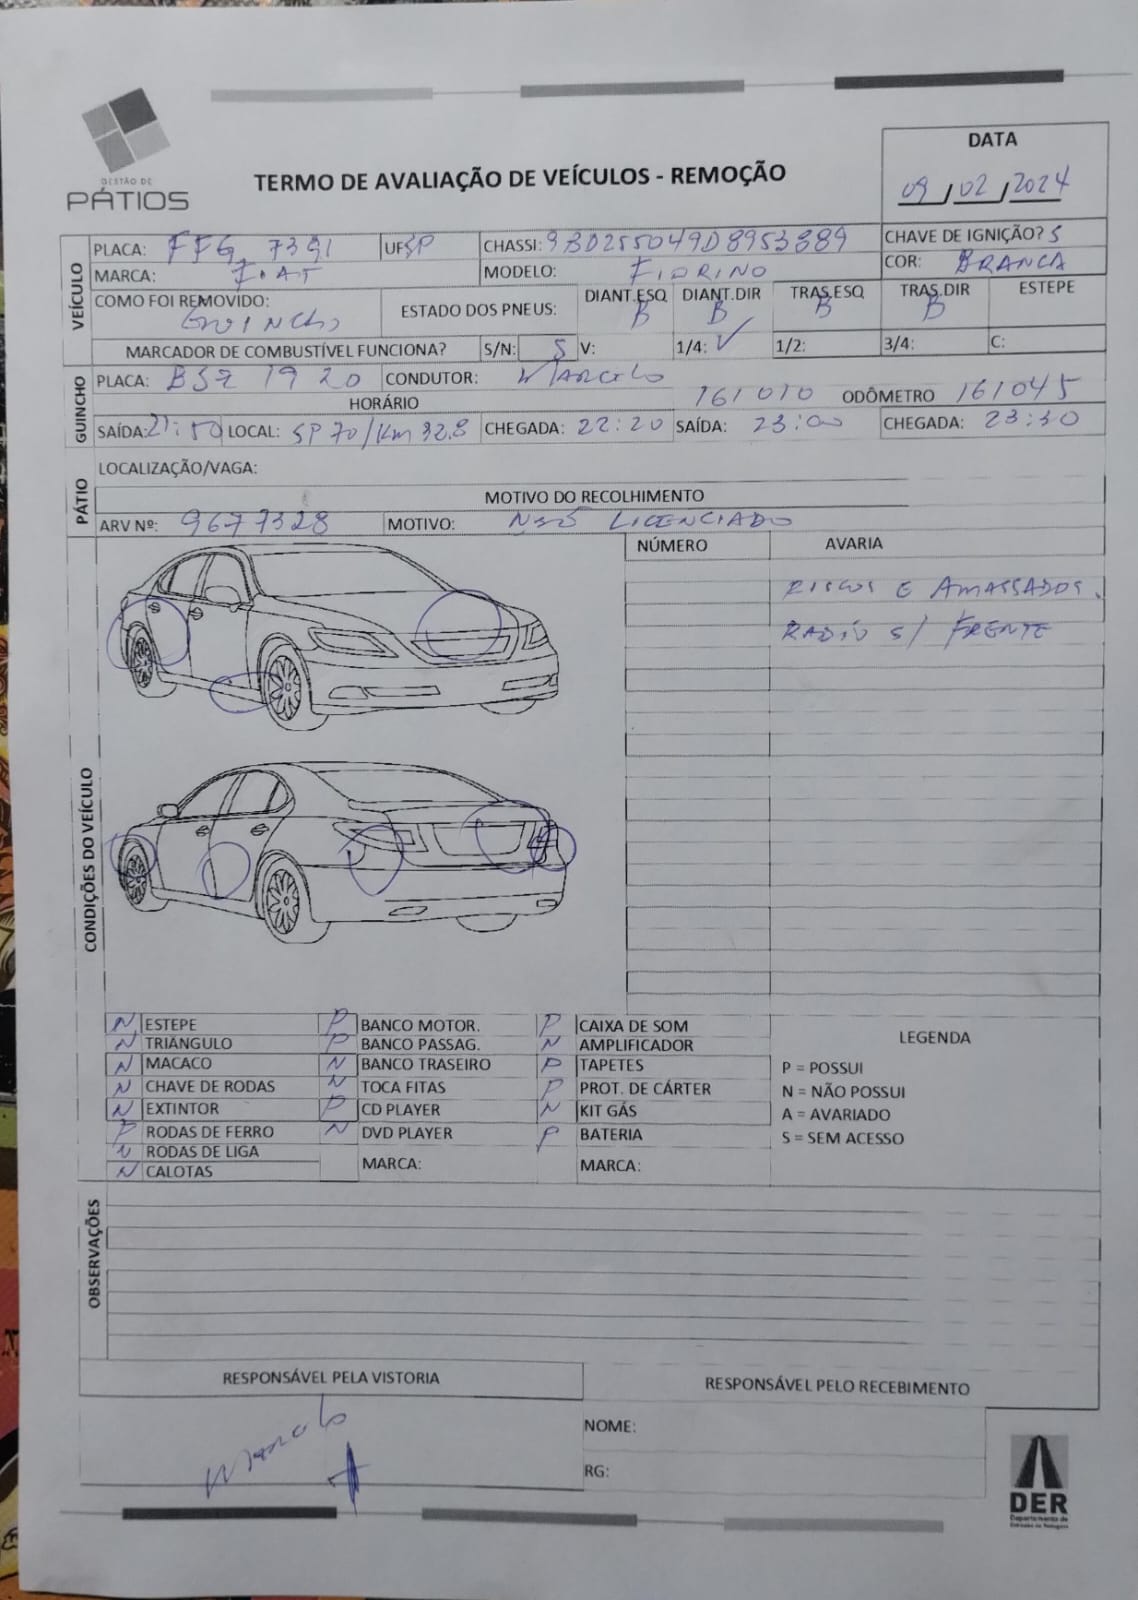 GESTÃO DE
PÁTIOS
TERMO DE AVALIAÇÃO DE VEÍCULOS - REMOÇÃO
DATA
09/02/2024
PLACA: FFG 7391 UF SP CHASSI: 9BD255049D8953889 CHAVE DE IGNIÇÃO? S
MARCA: FIAT MODELO: FIORINO COR: BRANCA
VEÍCULO
COMO FOI REMOVIDO: GUINCHO ESTADO DOS PNEUS: DIANT.ESQ B DIANT.DIR B TRAS.ESQ B TRAS.DIR B ESTEPE
MARCADOR DE COMBUSTÍVEL FUNCIONA? S/N: S V: 1/4: ✓ 1/2: 3/4: C:
GUINCHO
PLACA: BSZ 1920 CONDUTOR: MARCELO
HORÁRIO 161010 ODÔMETRO 161045
SAÍDA: 21:50 LOCAL: SP 70/KM 32.8 CHEGADA: 22:20 SAÍDA: 23:00 CHEGADA: 23:30
PÁTIO
LOCALIZAÇÃO/VAGA:
MOTIVO DO RECOLHIMENTO
ARV Nº: 9677328 MOTIVO: NÃO LICENCIADO
CONDIÇÕES DO VEÍCULO
NÚMERO AVARIA
RISCOS E AMASSADOS.
RADIO S/ FRENTE
N ESTEPE P BANCO MOTOR. P CAIXA DE SOM
N TRIÂNGULO P BANCO PASSAG. N AMPLIFICADOR
N MACACO N BANCO TRASEIRO P TAPETES
N CHAVE DE RODAS N TOCA FITAS P PROT. DE CÁRTER
N EXTINTOR P CD PLAYER N KIT GÁS
P RODAS DE FERRO N DVD PLAYER P BATERIA
N RODAS DE LIGA MARCA: MARCA:
N CALOTAS
LEGENDA
P = POSSUI
N = NÃO POSSUI
A = AVARIADO
S = SEM ACESSO
OBSERVAÇÕES
RESPONSÁVEL PELA VISTORIA
Marcelo
RESPONSÁVEL PELO RECEBIMENTO
NOME:
RG:
DER